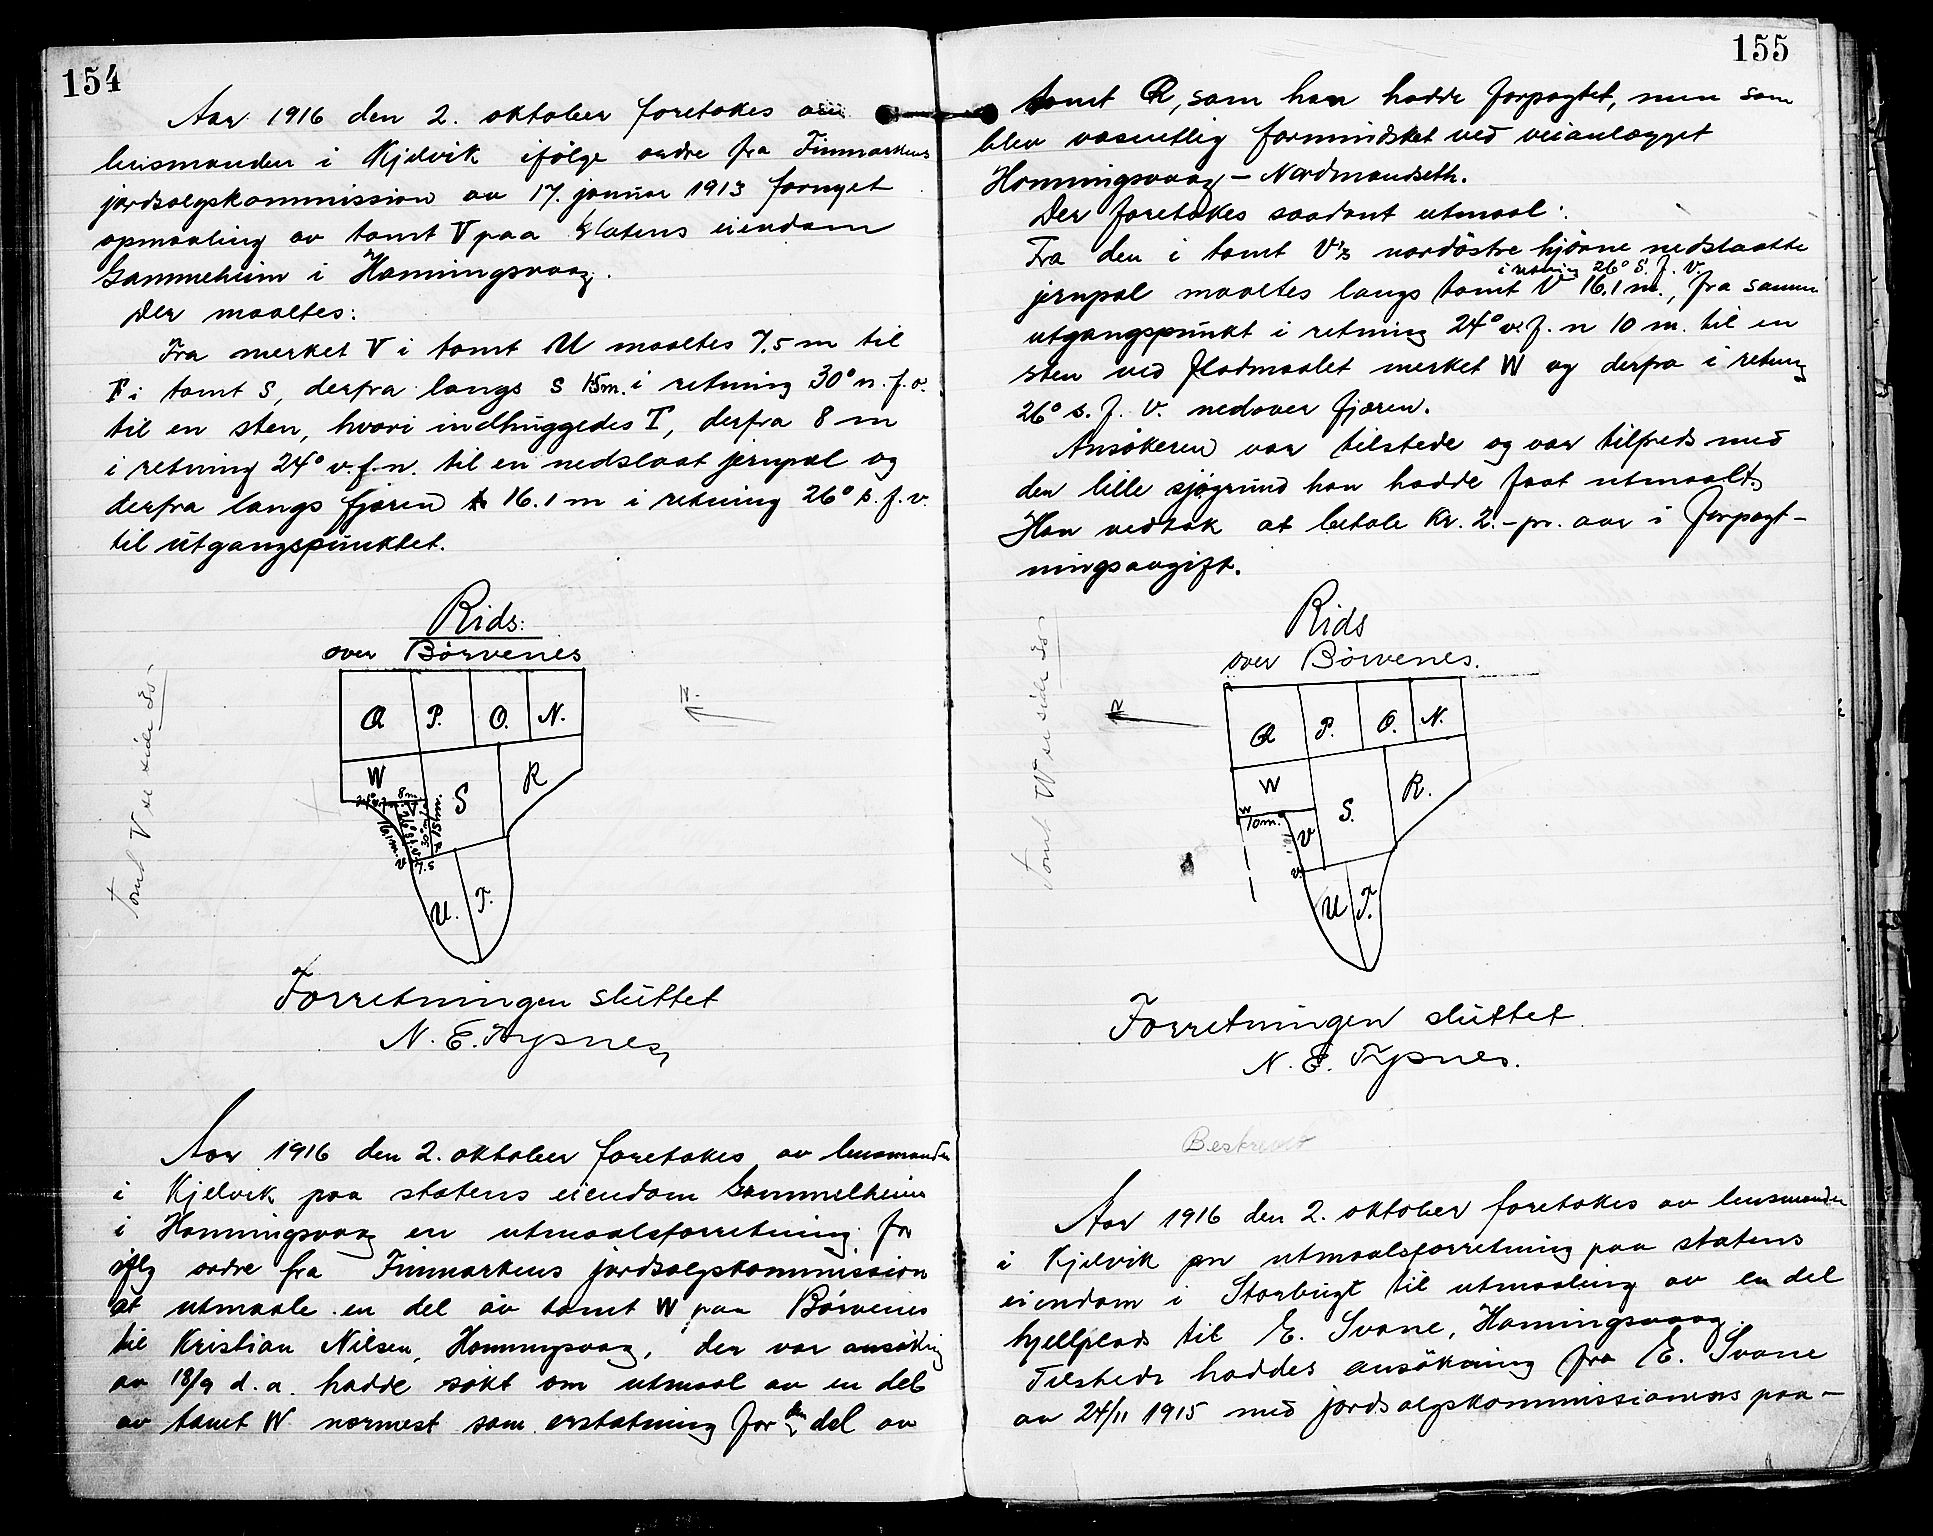 154
Aar 1916 den 2. oktober foretokes av
lensmanden i Kjelvik ifölge ordre fra Finmarkens
jordsalgskommission av 17. januar 1913 fornyet
opmaaling av tomt V paa Statens eiendom
Gammeheim i Honningsvaag.
Der maaltes:
Fra merket V i tomt U maaltes 7.5 m til
T i tomt S, derfra langs S 15 m. i retning 30° n. f. o.
til en sten, hvori indhuggedes T, derfra 8 m
i retning 24° v. f. n. til en nedslaat jernpæl og
derfra langs fjæren 16.1 m i retning 26° s. f. v.
til utgangspunktet.
Rids:
over Börvenes
Q P. O. N.
W S R
8 m
24° v. f. n.
V
16.1 m.
26° s. f. v.
30° n. f. o.
15 m.
V 7.5
U. T.
N.
Tomt V se side
Forretningen sluttet
N. E. Tysnes
Aar 1916 den 2. oktober foretokes av lensmanden
i Kjelvik paa statens eiendom Gammelheim
i Honningsvaag en utmaalsforretning for
iflg ordre fra Finmarkens jordsalgskommission
at utmaale en del av tomt W paa Börvenes
til Kristian Nilsen, Honningsvaag, der var ansökning
av 18/9 d. a. hadde sökt om utmaal av en del
av tomt W nærmest som erstatning for en del av
155
tomt Q, som han hadde forpagtet, men som
blev væsentlig formindsket ved veianlægget
Honningsvaag - Nordmandseth.
Der foretokes saadant utmaal:
Fra den i tomt V's nordöstre hjörne nedslaatte
i retning 26° S. f. V.
jernpæl maaltes langs tomt V 16.1 m., fra samme
utgangspunkt i retning 24° v. f. n 10 m. til en
sten ved flodmaalet merket W og derfra i retning
26° s. f. v. nedover fjæren.
Ansökeren var tilstede og var tilfreds med
den lille sjögrund han hadde faat utmaalt.
Han vedtok at betale Kr. 2.- pr. aar i forpagt-
ningsavgift.
Rids
over Börvenes.
Q P. O. N.
W S. R.
W
10 m.
V
V.
U T.
N
Tomt W se side
Forretningen sluttet
N. E. Tysnes.
Beskrevet
Aar 1916 den 2. oktober foretokes av lensmanden
i Kjelvik en utmaalsforretning paa statens
eiendom i Storbugt til utmaaling av en del
hjellplads til E. Svane, Honningsvaag.
Tilstede haddes ansökning fra E. Svane
av 24/11 1915 med jordsalgskommissionens paa-